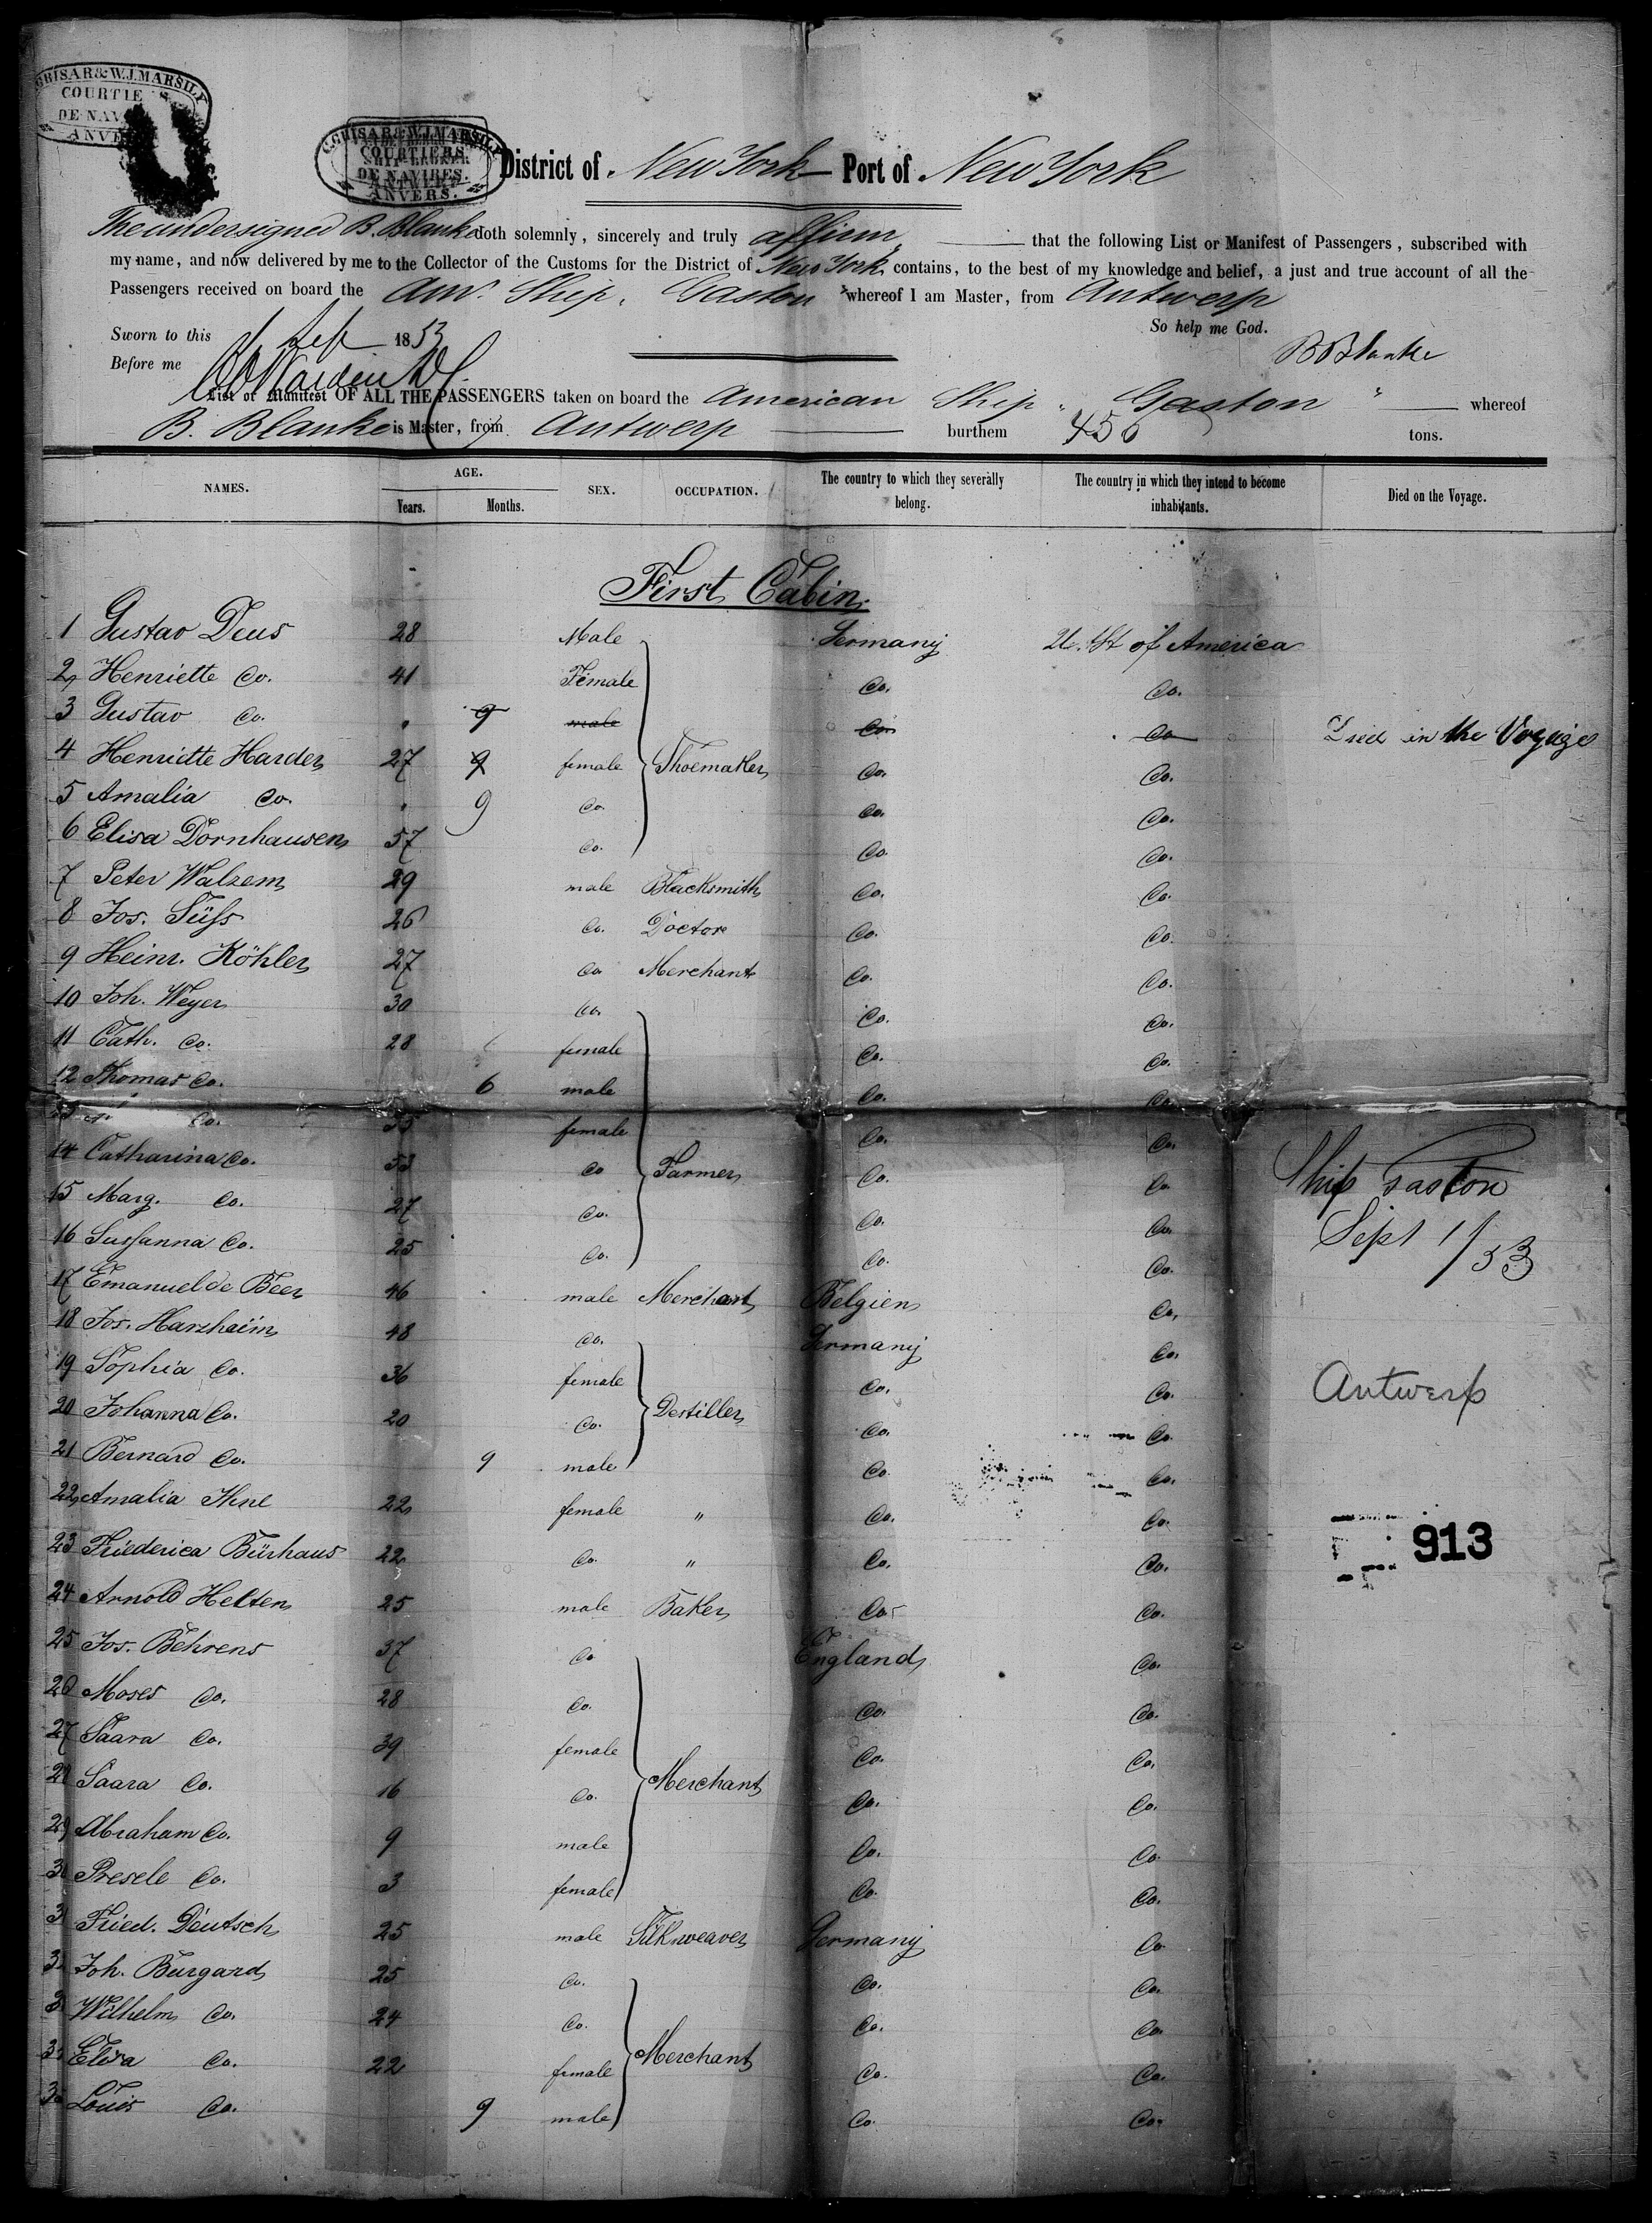 GRISAR & W.J. MARSILY
COURTIE
DE NAV
ANVE
GRISAR & W.J. MARSILY
COURTIERS
DE NAVIRES.
ANVERS.
District of New York Port of New York
The undersigned B. Blanke doth solemnly, sincerely and truly affirm that the following List or Manifest of Passengers, subscribed with
my name, and now delivered by me to the Collector of the Customs for the District of New York contains, to the best of my knowledge and belief, a just and true account of all the
Passengers received on board the Am. Ship, Gaston whereof I am Master, from Antwerp
Sworn to this 1 Sept 1853 So help me God.
Before me B Blanke
List or Manifest OF ALL THE PASSENGERS taken on board the American Ship " Gaston " whereof
B. Blanke is Master, from Antwerp burthem 456 tons.
NAMES. AGE. Years. Months. SEX. OCCUPATION. The country to which they severally belong. The country in which they intend to become inhabitants. Died on the Voyage.
First Cabin
1 Gustav Deus 28 Male Germany U. St of America
2 Henriette Do. 41 Female Do. Do.
3 Gustav Do. " 9 male Do. Do Died in the Voyage
4 Henriette Harder 27 9 female Shoemaker Do. Do.
5 Amalia Do. " 9 Do. Do. Do.
6 Elisa Dornhausen 57 Do. Do. Do.
7 Peter Walzem 29 male Blacksmith Do. Do.
8 Jos. Süss 26 Do. Doctor Do. Do.
9 Heinr. Köhler 27 Do Merchant Do. Do.
10 Joh. Weyer 30 Do. Do. Do.
11 Cath. Do. 28 female Do. Do.
12 Thomas Do. 6 male Do. Do.
Do. female Do. Do.
14 Catharina Do. 53 Do Farmer Do. Do.
15 Marg. Do. 27 Do. Do. Do.
16 Sussanna Do. 25 Do. Do. Do.
17 Emanuel de Beer 46 male Merchant Belgien Do.
18 Jos. Harzheim 48 Do. Germany Do.
19 Sophia Do. 36 female Do. Do.
20 Johanna Do. 20 Do. Destiller Do. Do.
21 Bernard Do. 9 male Do. Do.
22 Amalia Ihne 22 female " Do. Do.
23 Friederica Bürhaus 22 Do. " Do. Do.
24 Arnold Helten 25 male Baker Do. Do.
25 Jos. Behrens 37 Do England Do.
26 Moses Do. 28 Do. Do. Do.
27 Saara Do. 39 female Do. Do.
28 Saara Do. 16 Do. Merchant Do. Do.
29 Abraham Do. 9 male Do. Do.
3 Presele Do. 3 female Do. Do.
3 Fried. Deutsch 25 male Silkweaver Germany Do
3 Joh. Burgard 25 Do. Do. Do.
3 Wilhelm Do. 24 Do. Do. Do.
3 Elisa Do. 22 female Merchant Do. Do.
3 Louis Do. 9 male Do. Do.
Ship Gaston
Sept 1/53
Antwerp
913